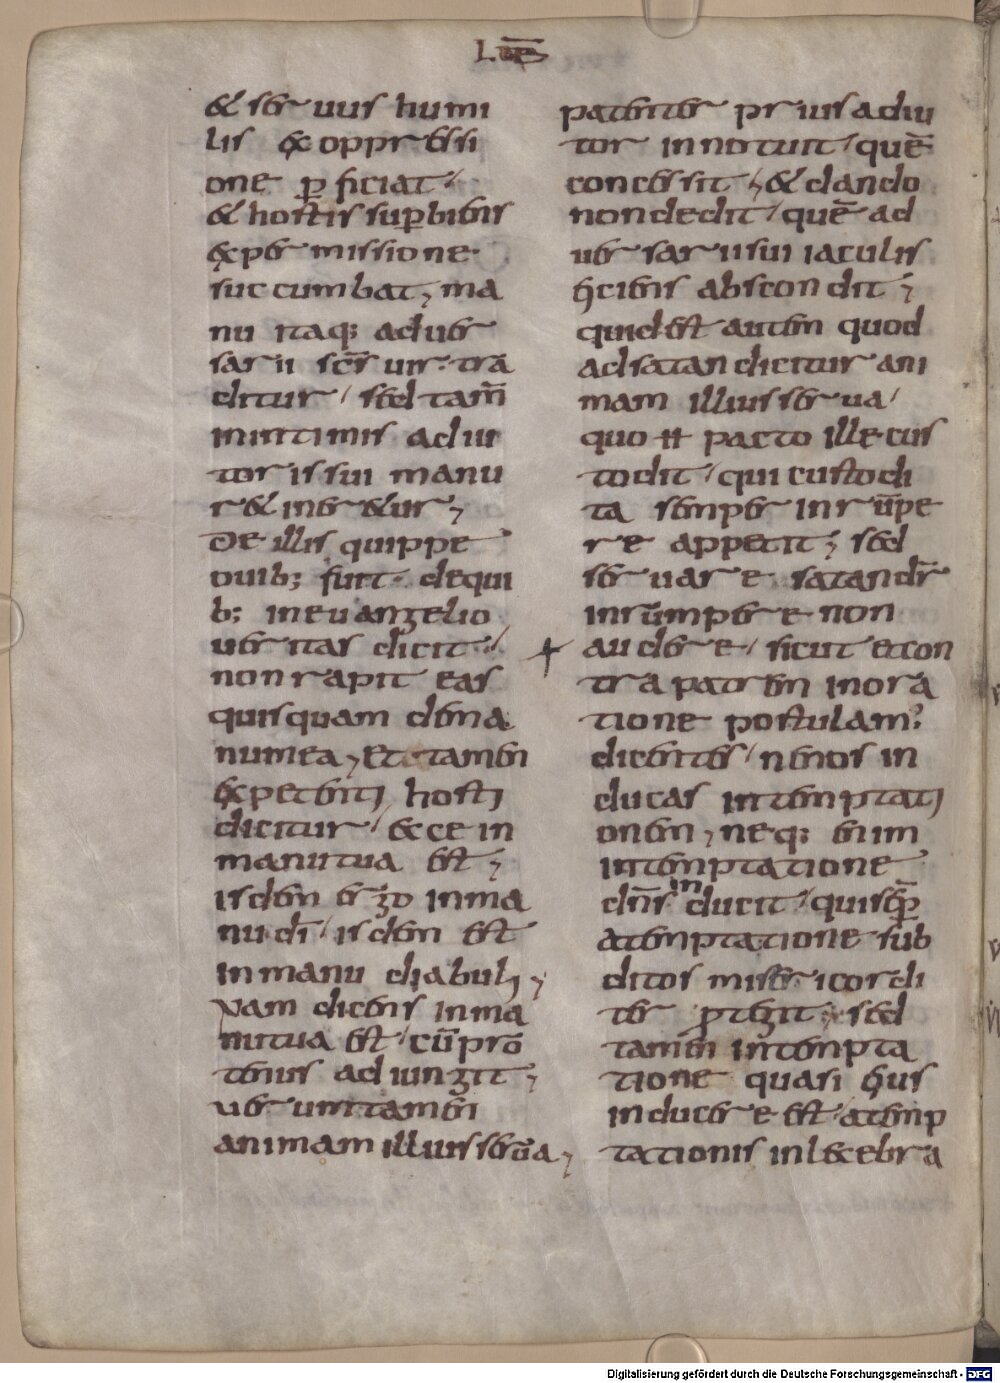 LIB̅
& seruus humi
lis & oppressi
one proficiat;
& hostis superbiens
ex permissione
succumbat; ma
nu itaq; aduer
sarii sc̅s uir tra
ditur / sed tam̅
in intimis adiu
toris sui manu
r&in&ur;
De illis quippe
ouib; fuit dequi
b; in euangelio
ueritas dicit /
non rapit eas
quisquam dema
nu mea; et tamen
expetenti hosti
dicitur / ecce in
manu tua est;
isdem ergo in ma
nu di̅ / isdem est
in manu diabuli;
Nam dicens in ma
nu tua est / cu̅ pro
tenus adiungit;
Uerumtamen
animam illius serua;
patenter prius adiu
tor innotuit / que̅
concessit; & dando
non dedit / que̅ ad
uersarii sui iaculis
hiciens abscondit;
quid est autem quod
ad satan dicitur ani
mam illius serua /
quo ħ pacto ille cus
todit / qui custodi
ta semper inru̅pe
re appetit; sed
seruare satan dr̅
inru̅mpere non
audere / sicut et con
tra patrem in ora
tione postulam?
dicentes / ne nos in
ducas in temptati
onem; neq; enim
in temptatione
dn̅s inducit / qui sep̅
a temptatione sub
ditos misericordi
ter protegit; sed
tamen in tempta
tione quasi eius
inducere est / a temp
tationis inlecebra
Digitalisierung gefördert durch die Deutsche Forschungsgemeinschaft - DFG